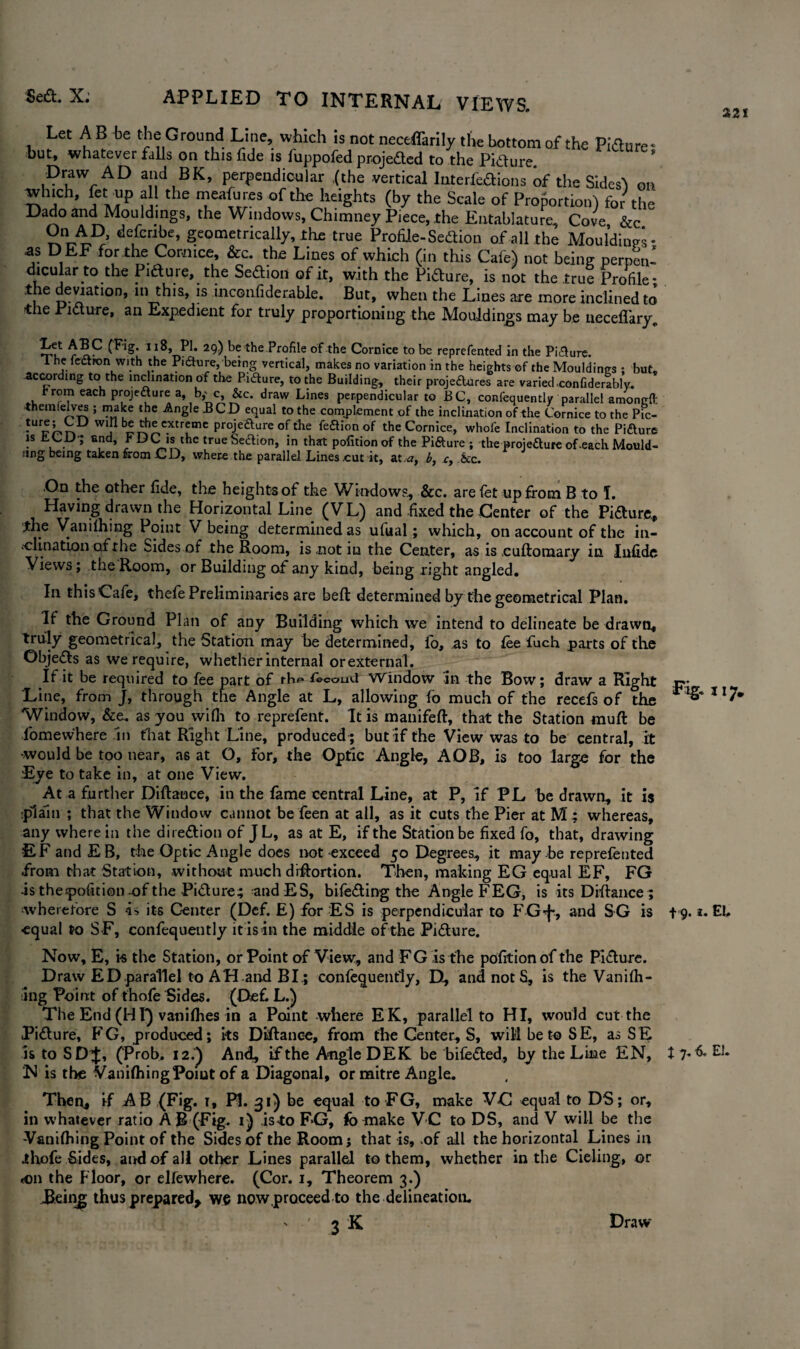 Sect. X. APPLIED TO INTERNAL VIEWS. 221
Let A B be the Ground Line, which is not neceſſarily the bottom of the Picture;
but, whatever falls on this ſide is ſuppoſed projected to the Picture.
Draw AD and BK, perpendicular (the vertical Interſections of the Sides) on
which, ſet up all the meaſures of the heights (by the Scale of Proportion) for the
Dado and Mouldings, the Windows, Chimney Piece, the Entablature, Cove, &c.
On AD, deſcribe, geometrically, the true Profile-Section of all the Mouldings;
as DEF for the Cornice, &c. the Lines of which (in this Caſe) not being perpen-
dicular to the Picture, the Section of it, with the Picture, is not the true Profile;
the deviation, in this, is inconſiderable. But, when the Lines are more inclined to
the Picture, an Expedient for truly proportioning the Mouldings may be neceſſary.
Let ABC (Fig. 118, Pl. 29) be the Profile of the Cornice to be repreſented in the Picture.
The ſection with the Picture, being vertical, makes no variation in the heights of the Mouldings; but,
according to the inclination of the Picture, to the Building, their projectures are varied conſiderably.
From each projecture a, b, c, &c. draw Lines perpendicular to BC, conſequently parallel amongſt
themſelves; make the Angle BCD equal to the complement of the inclination of the Cornice to the Pic-
ture; CD will be the extreme projecture of the ſection of the Cornice, whoſe Inclination to the Picture
is ECD; and, FDC is the true Section, in that poſition of the Picture; the projecture of each Mould-
ing being taken from CD, where the parallel Lines cut it, at a, b, c, &c.
On the other ſide, the heights of the Windows, &c. are ſet up from B to I.
Having drawn the Horizontal Line (VL) and fixed the Center of the Picture,
the Vaniſhing Point V being determined as uſual; which, on account of the in-
clination of the Sides of the Room, is not in the Center, as is cuſtomary in Inſide
Views; the Room, or Building of any kind, being right angled.
In this Caſe, theſe Preliminaries are beſt determined by the geometrical Plan.
If the Ground Plan of any Building which we intend to delineate be drawn,
truly geometrical, the Station may be determined, ſo, as to ſee ſuch parts of the
Objects as we require, whether internal or external.
If it be required to ſee part of the ſecond Window in the Bow; draw a Right
Line, from J, through the Angle at L, allowing ſo much of the receſs of the Fig. 117.
Window, &c. as you wiſh to repreſent. It is manifeſt, that the Station muſt be
ſomewhere in that Right Line, produced; but if the View was to be central, it
would be too near, as at O, for, the Optic Angle, AOB, is too large for the
Eye to take in, at one View.
At a further Diſtance, in the ſame central Line, at P, if PL be drawn, it is
plain; that the Window cannot be ſeen at all, as it cuts the Pier at M; whereas,
any where in the direction of JL, as at E, if the Station be fixed ſo, that, drawing
EF and EB, the Optic Angle does not exceed 50 Degrees, it may be repreſented
from that Station, without much diſtortion. Then, making EG equal EF, FG
is the poſition of the Picture; and ES, biſecting the Angle FEG, is its Diſtance;
wherefore S is its Center (Def. E) for ES is perpendicular to FG†, and SG is † 9. 1. El.
equal to SF, conſequently it is in the middle of the Picture.
Now, E, is the Station, or Point of View, and FG is the poſition of the Picture.
Draw ED parallel to AH and BI; conſequently, D, and not S, is the Vaniſh-
ing Point of thoſe Sides. (Def. L.)
The End (HI) vaniſhes in a Point where EK, parallel to HI, would cut the
Picture, FG, produced; its Diſtance, from the Center, S, will be to SE, as SE
is to SD‡, (Prob. 12.) And, if the Angle DEK be biſected, by the Line EN, ‡ 7. 6. El.
N is the Vaniſhing Point of a Diagonal, or mitre Angle.
Then, if AB (Fig. 1, Pl. 31) be equal to FG, make VC equal to DS; or,
in whatever ratio AB (Fig. 1) is to FG, ſo make VC to DS, and V will be the
Vaniſhing Point of the Sides of the Room; that is, of all the horizontal Lines in
thoſe Sides, and of all other Lines parallel to them, whether in the Cieling, or
on the Floor, or elſewhere. (Cor. 1, Theorem 3.)
Being thus prepared, we now proceed to the delineation.
3 K Draw